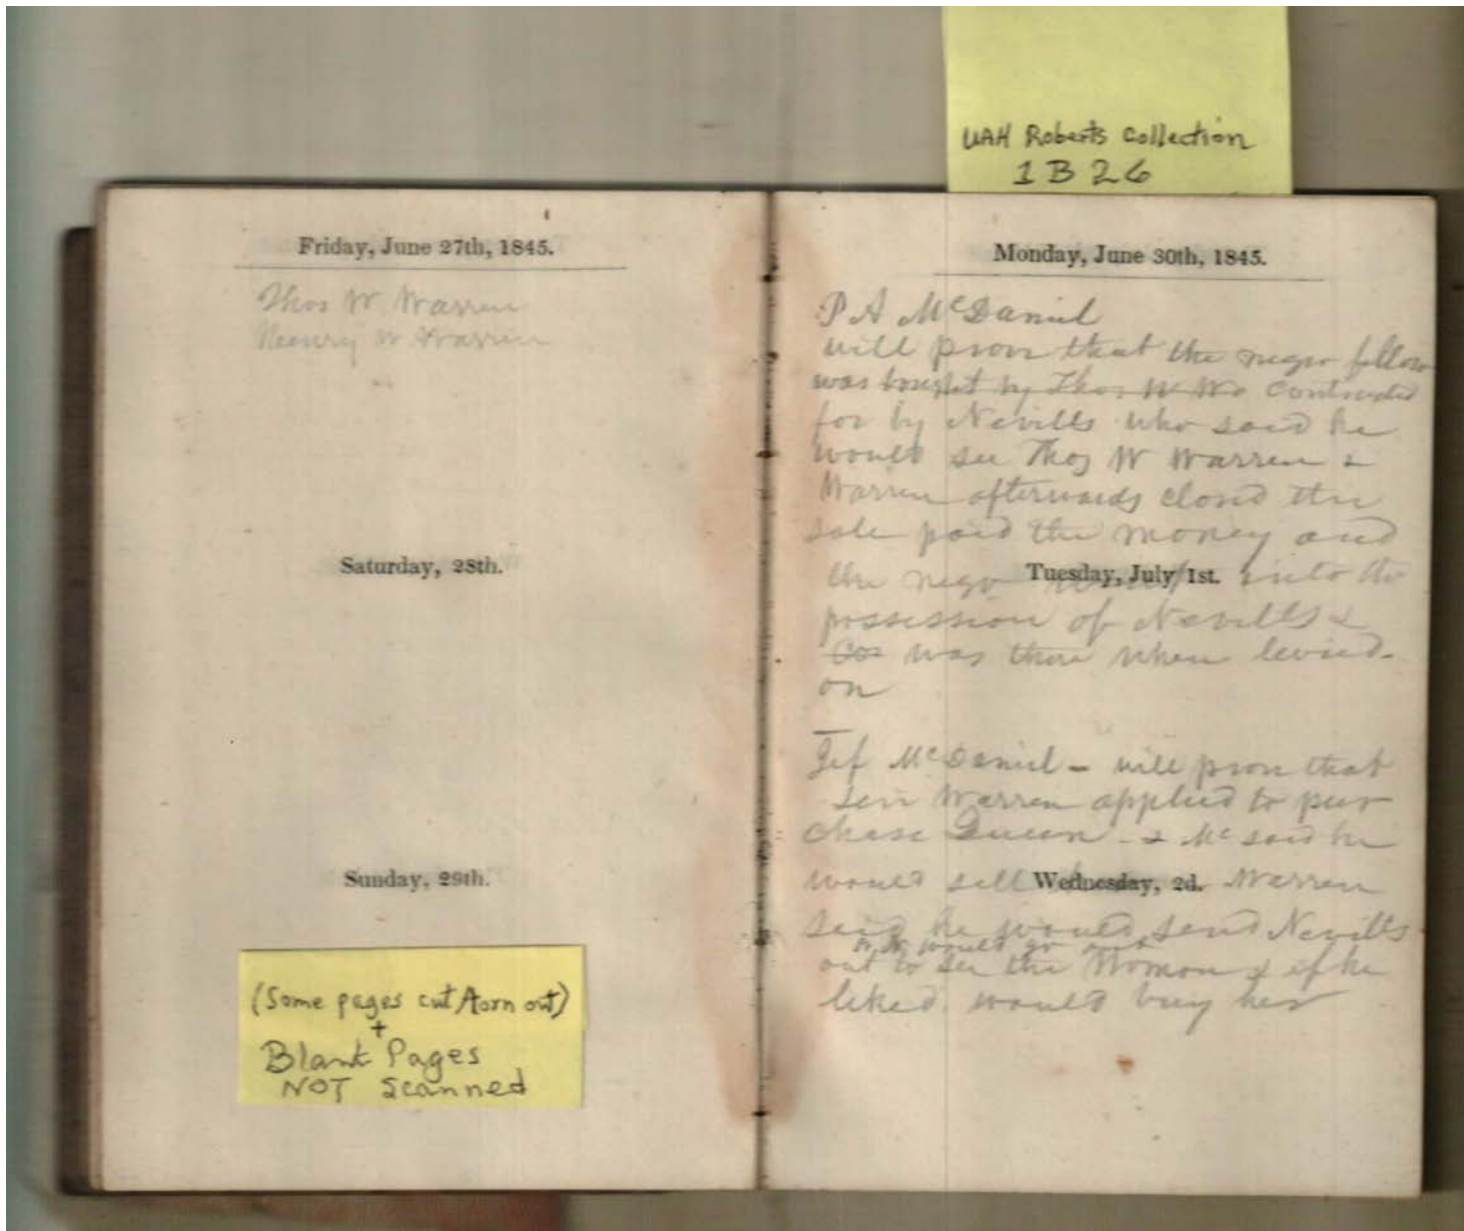 UAH Roberts Collection
1 B 26
Friday, June 27th, 1845.
Thos W Warren
Henry W Warren
Saturday, 28th.
Sunday, 29th.
(Some pages cut/torn out)
+
Blank Pages
NOT Scanned
Monday, June 30th, 1845.
P A McDaniel
will prove that the negro fellow
was bought by Thos W Wa contracted
for by Nevills who said he
would see Thos W Warren &
Warren afterwards closed the
sale paid the money and
the negro went into the
Tuesday, July 1st.
possession of Nevills &
Co was there when levied
on
Jef McDaniel - will prove that
Warren applied to pur
chase Queen - & Mc said he
would sell Warren
Wednesday, 2d.
said he would send Nevills
or would go
out to see the Woman & if he
liked would buy her